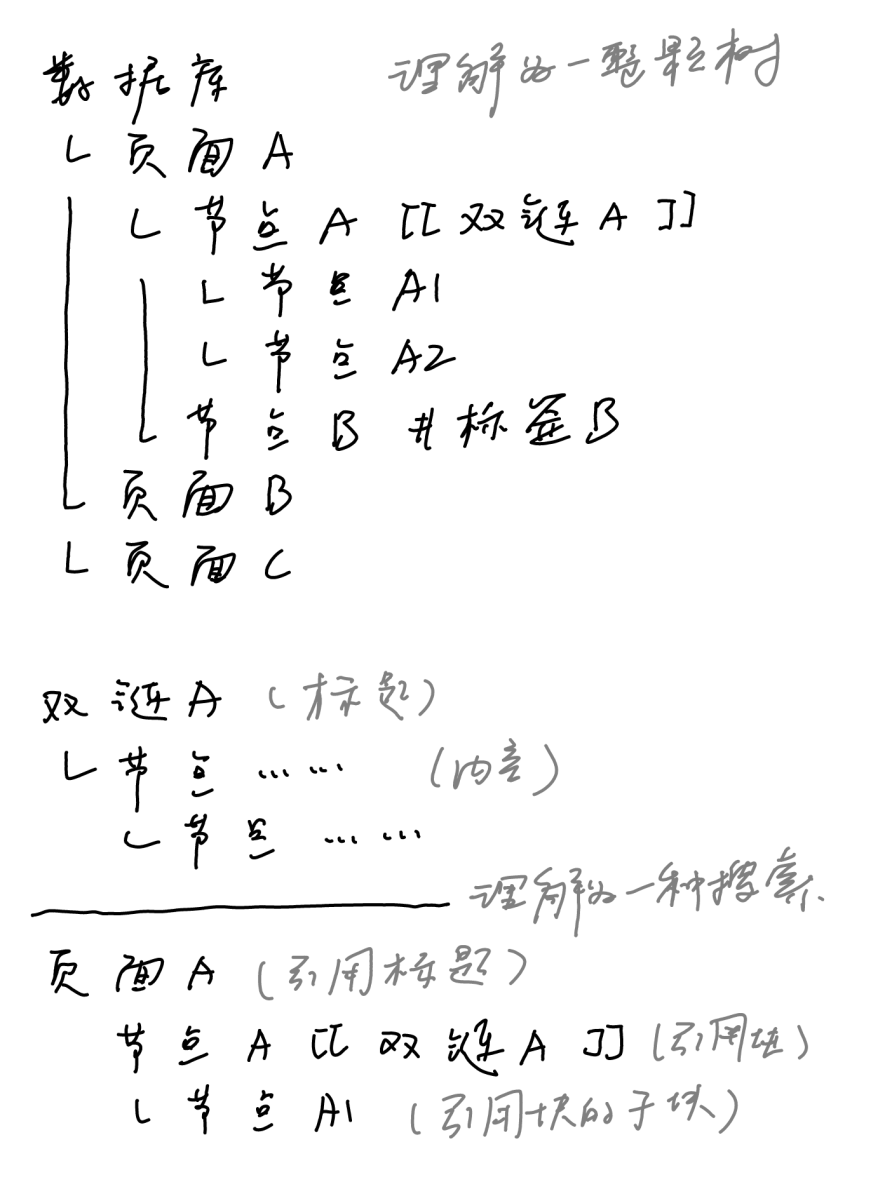 数据库 理解为一整颗树
└ 页面 A
└ 节点 A [[ 双链 A ]]
└ 节点 A1
└ 节点 A2
└ 节点 B #标签B
└ 页面 B
└ 页面 C
双链A (标题)
└ 节点 …… (内容)
└ 节点 ……
理解为一种搜索.
页面A (引用标题)
节点 A [[ 双链 A ]] (引用块)
└ 节点 A1 (引用块的子块)